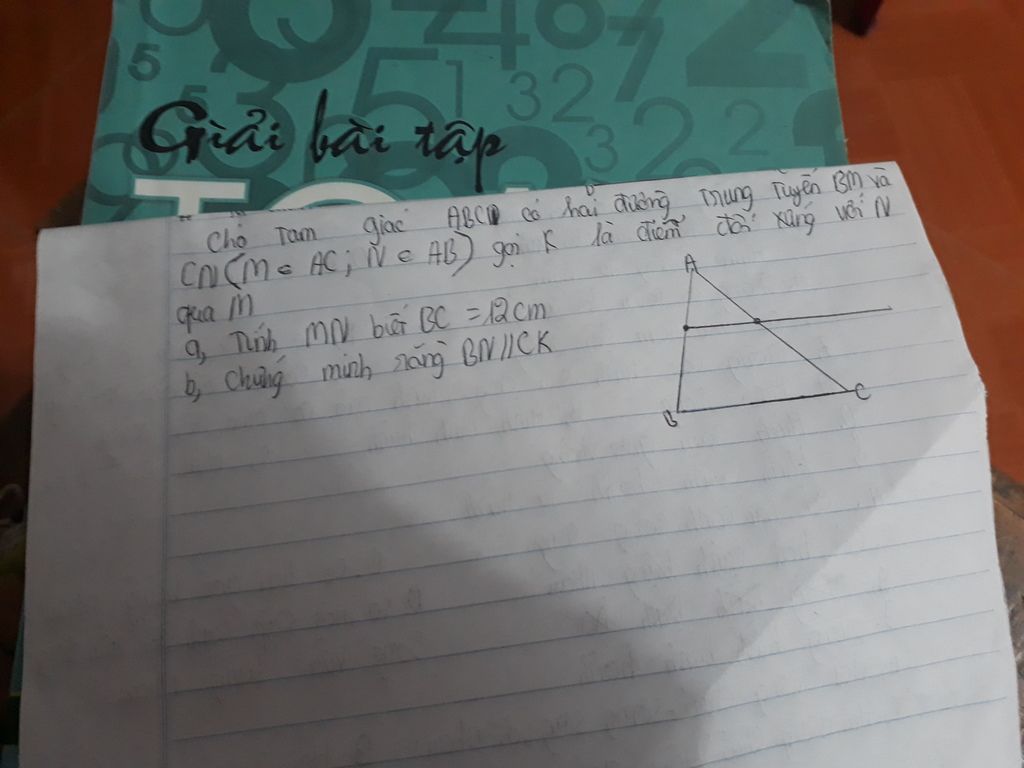 5
5
5
1
32
32
3
2
2
Giải bài tập
Cho tam giác ABC có hai đường trung tuyến BM và
CN (M ∈ AC; N ∈ AB) gọi K là điểm đối xứng với N
qua M
a, Tính MN biết BC = 12cm
b, Chứng minh rằng BN // CK
A
B
C